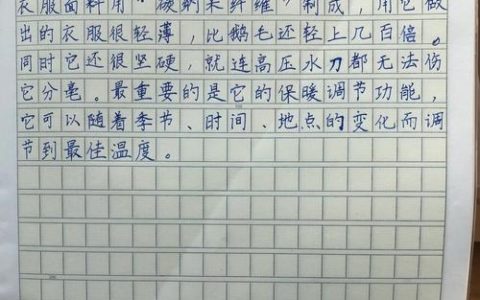 衣服面料用“碳纳米纤维”制成，用它做
出的衣服很轻薄，比鹅毛还轻上几百倍。
同时它还很坚硬，就连高压水刀都无法伤
它分毫。最重要的是它的保暖调节功能，
它可以随着季节、时间、地点的变化而调
节到最佳温度。